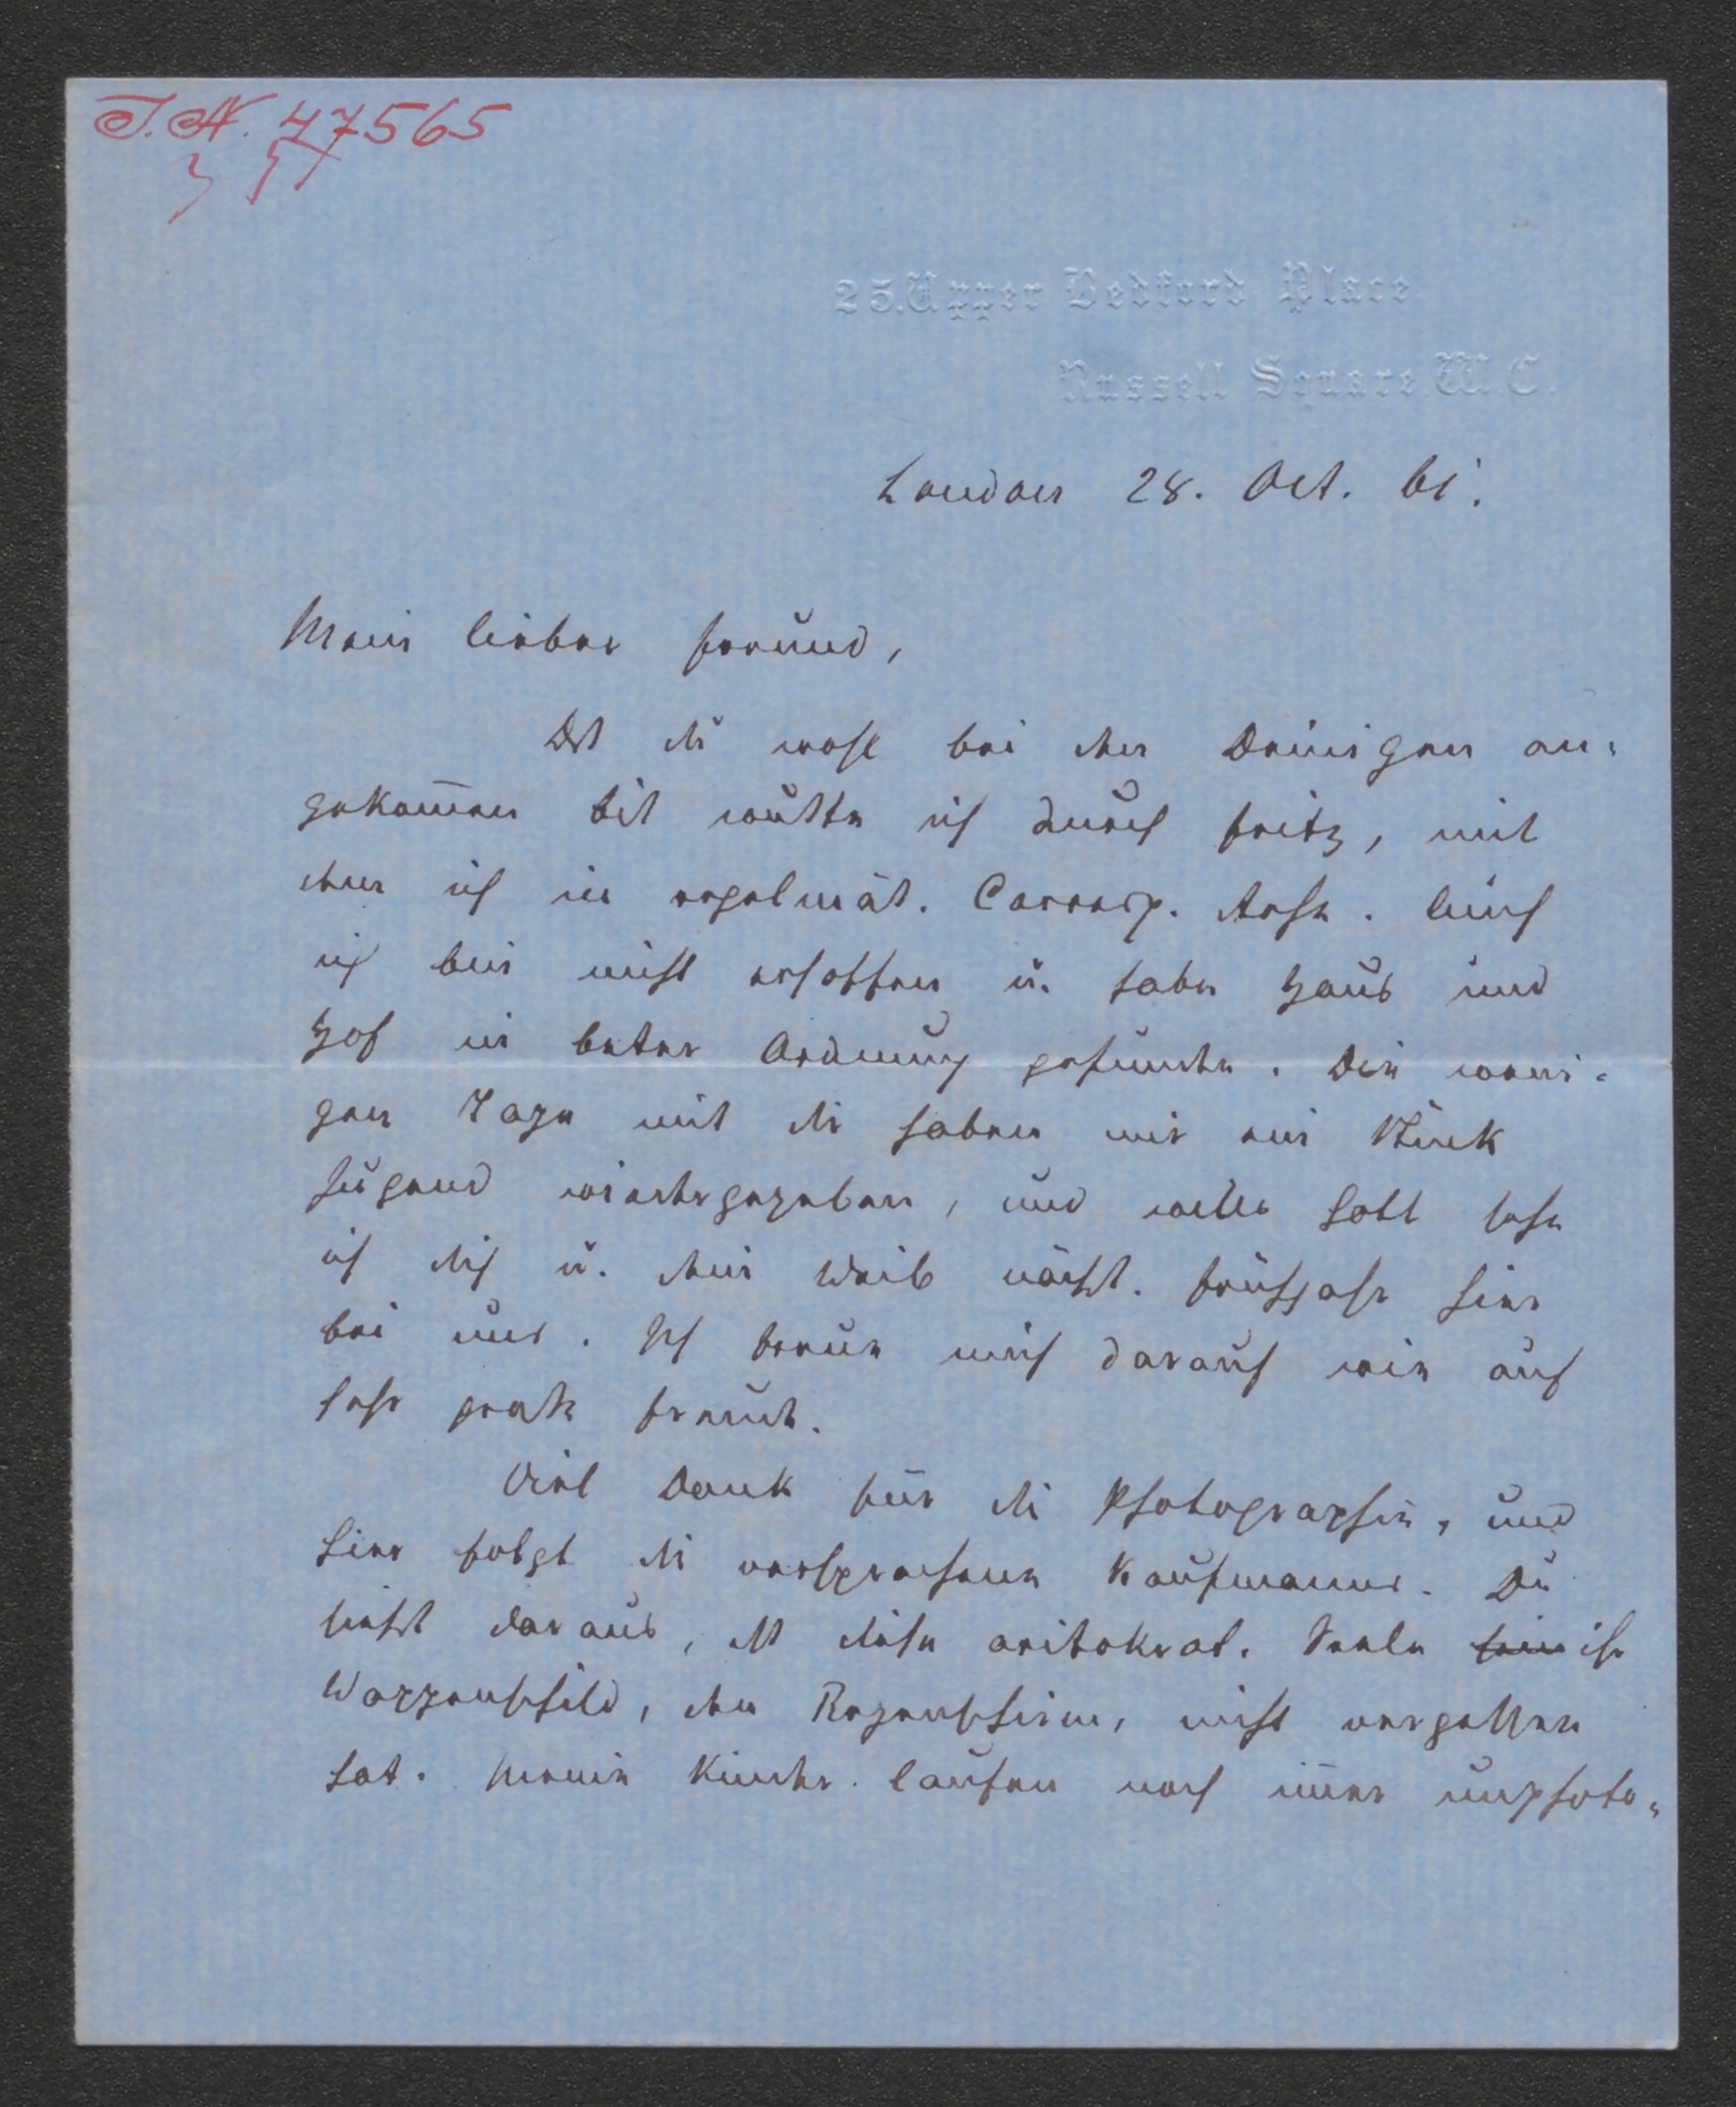 I.N. 47565
25. Upper Bedford Place
Russell Square. W.C.
London 28. Oct. 61.
Mein lieber Freund,
Dß du wohl bei den Deinigen an-
gekom̅en bist wußte ich durch Fritz, mit
dem ich in regelmäß. Corresp. stehe. Auch
ich bin nicht ersoffen u. habe Haus und
Hof in bester Ordnung gefunden. Die weni-
gen Tage mit dir haben mir ein Stück
Jugend wiedergegeben, und wills Gott sehe
ich dich u. dein Weib nächst. Frühjahr hier
bei uns. Ich freue mich darauf wie auf
sehr große Freude.
Viel Dank für die Photographie, und
hier folgt die versprochene Kaufmanns. Du
siehst daraus, dß diese aristokrat. Seele sein ihr
Wappenschild, den Regenschirm, nicht vergessen
hat. Meine Kinder laufen noch im̅er unphoto-